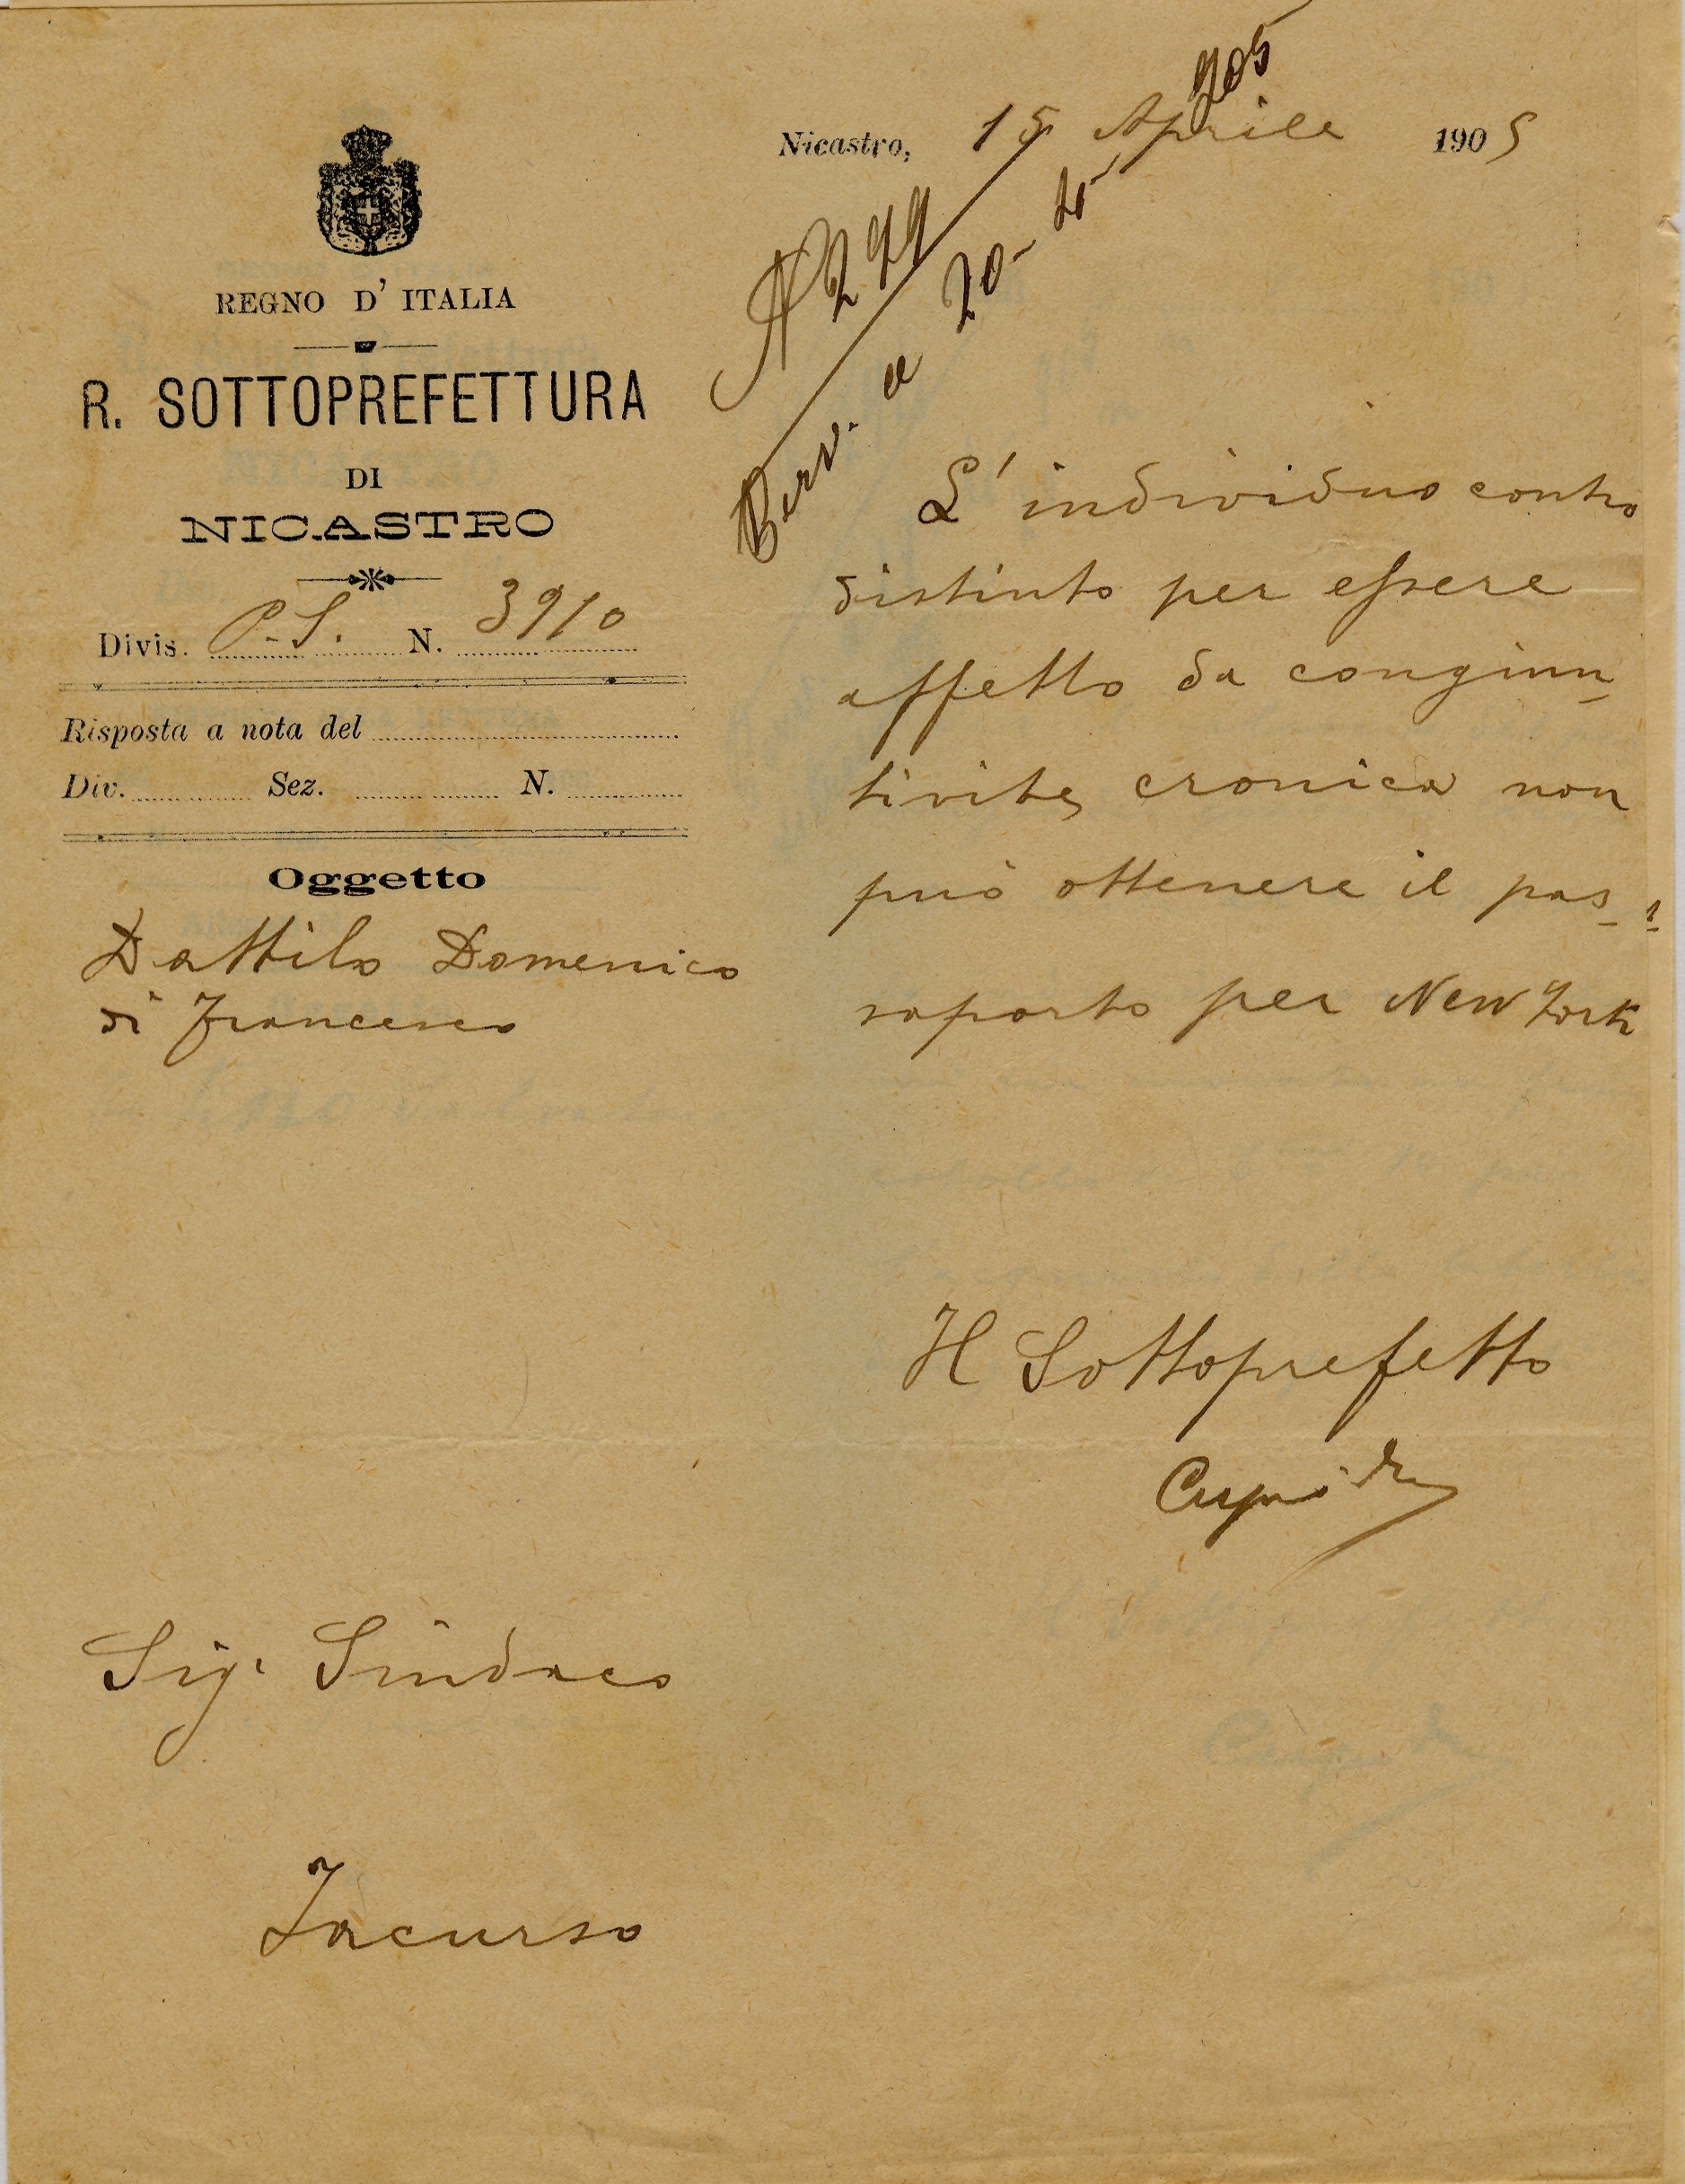 REGNO D' ITALIA
R. SOTTOPREFETTURA
DI
NICASTRO
Divis. P. S. N. 3910
Risposta a nota del
Div. Sez. N.
Oggetto
Dattilo Domenico
di Francesco
Nicastro, 15 Aprile 1905
N 299
a 20-4-905
L'individuo contro
distinto per essere
affetto da congiun_
tivite cronica non
può ottenere il pas_
saporto per New York
Il Sottoprefetto
Sig. Sindaco
Jacurso